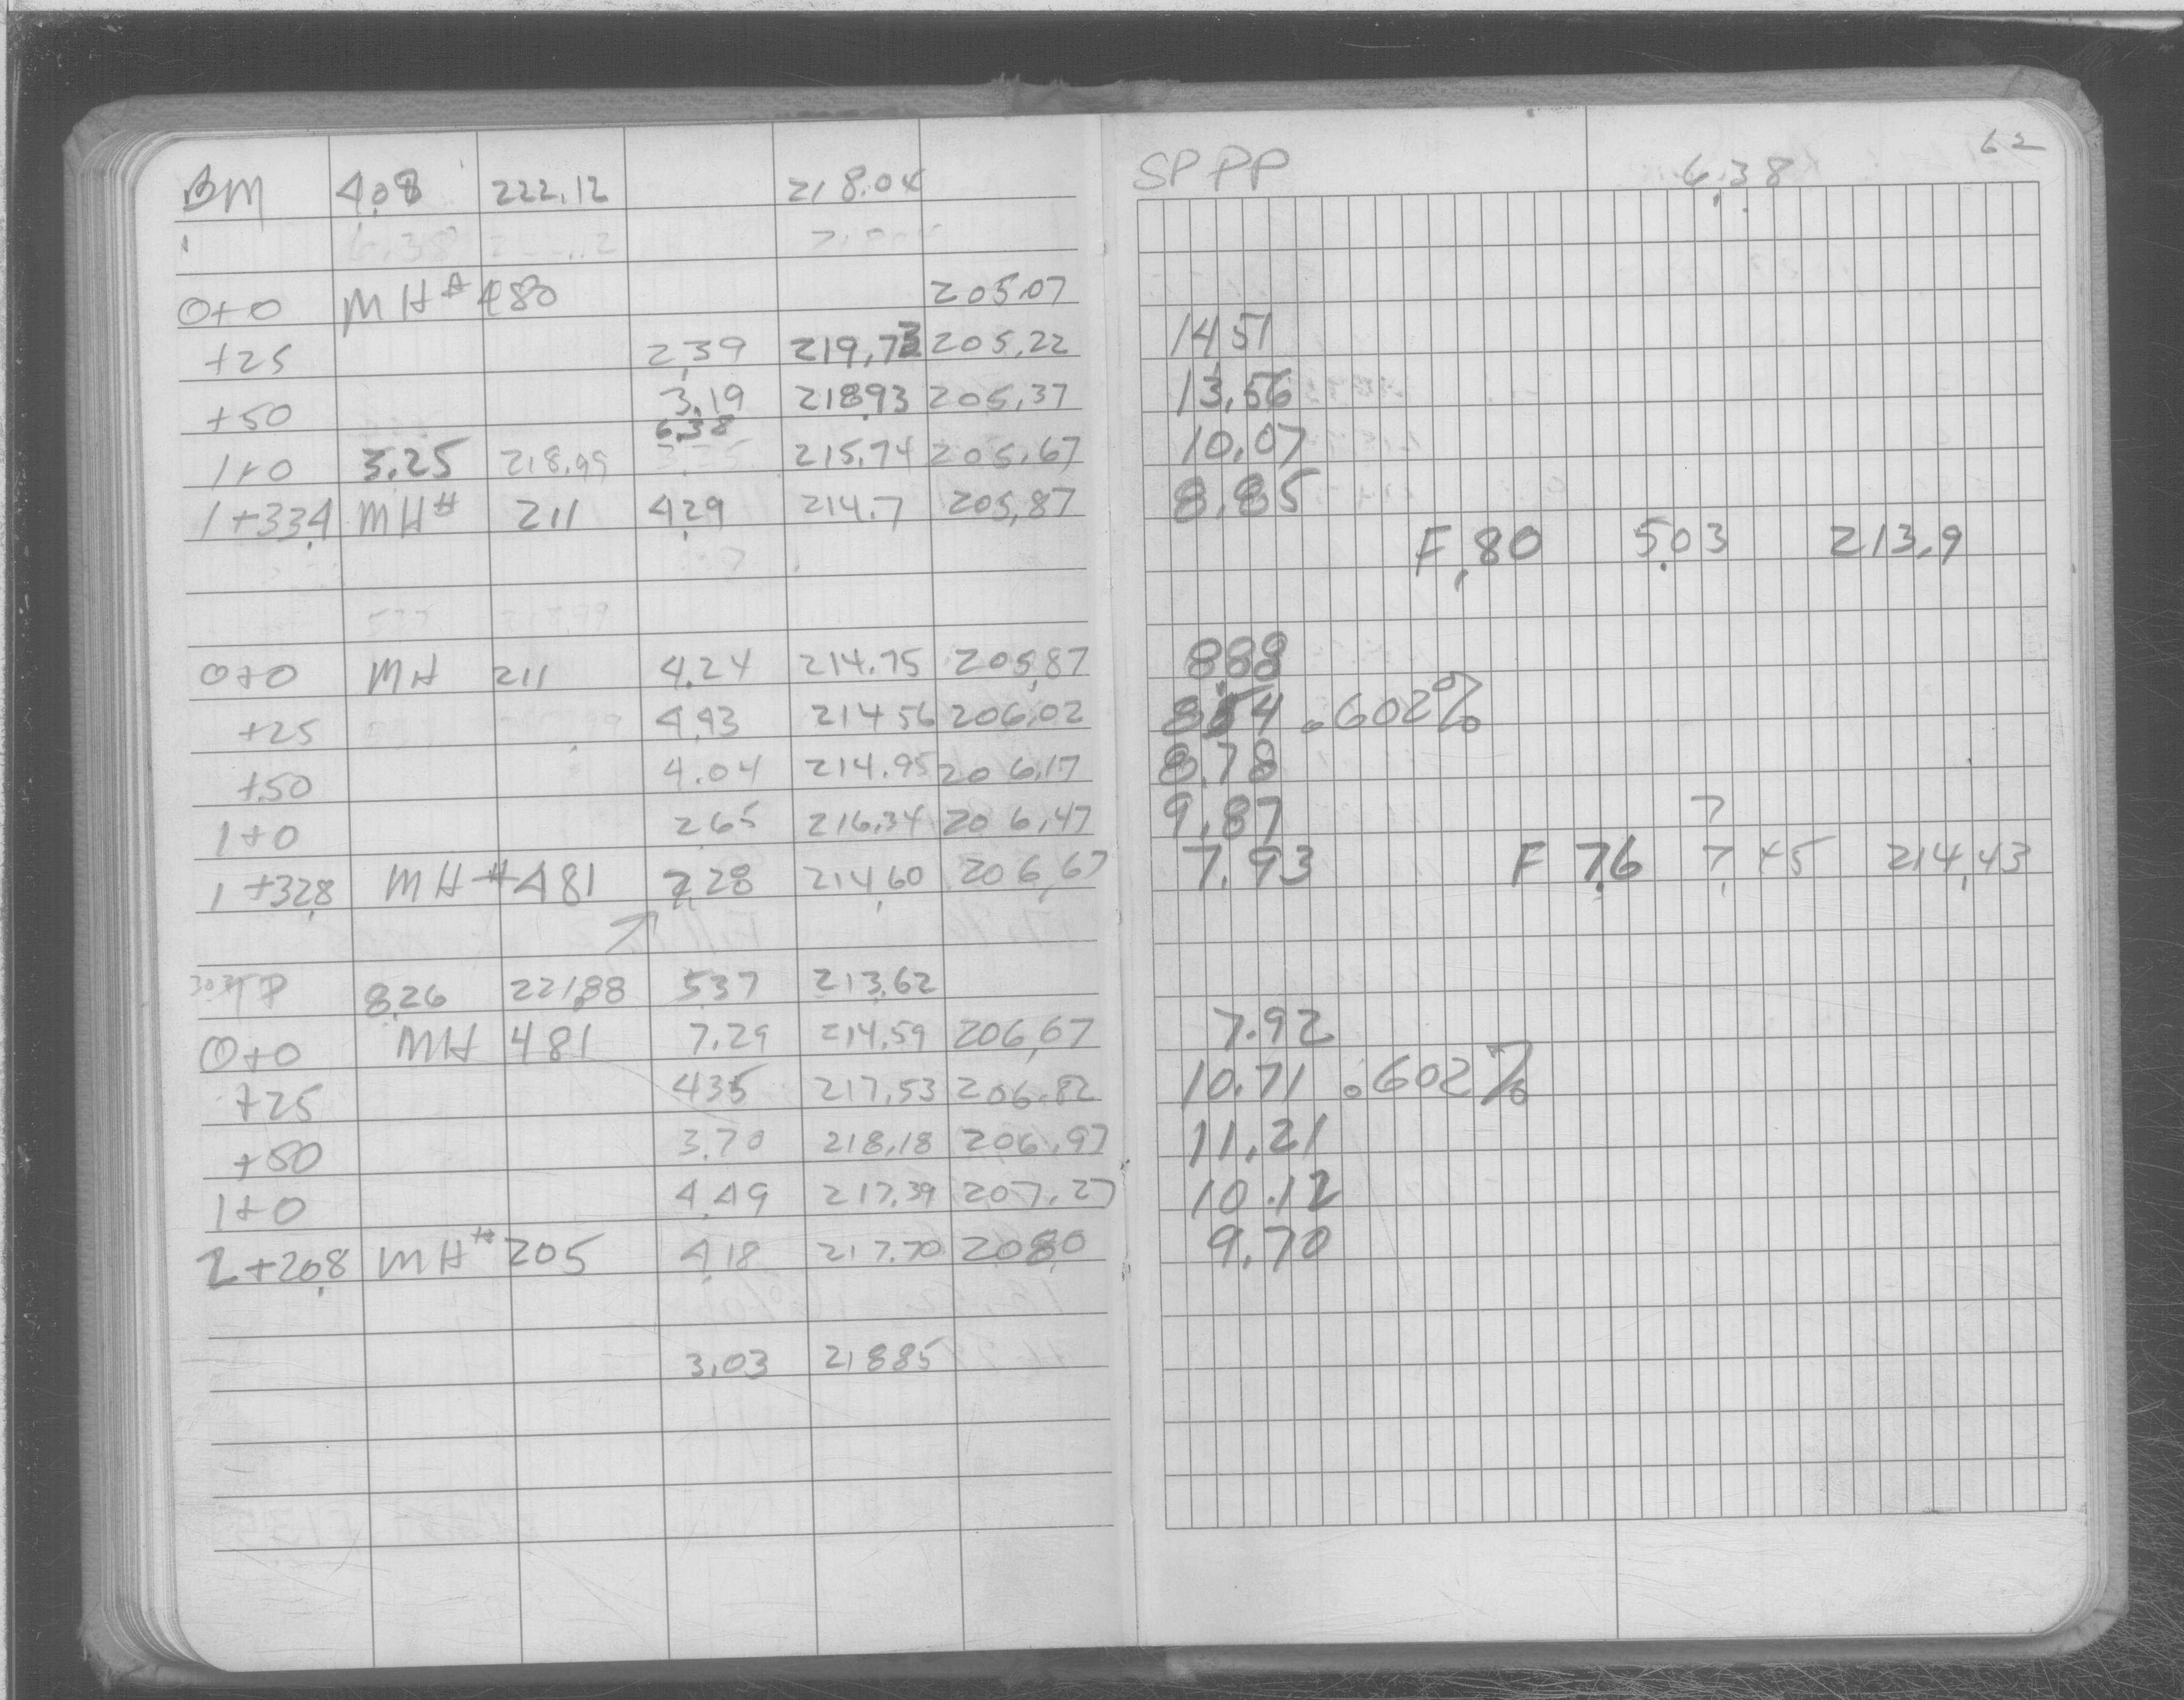 62
BM 4.08 222.12 218.04 SPPP 6.38
6.38
0+0 MH# 480 205.07
+25 2.39 219.73 205.22 14.51
+50 3.19 218.93 205.37 13.56
6.38
1+0 3.25 218.99 215.74 205.67 10.07
1+33.4 MH# 211 4.29 214.7 205.87 8.85
F.80 5.03 213.9
0+0 MH 211 4.24 214.75 205.87 8.88
+25 4.43 214.56 206.02 8.54 .602%
+50 4.04 214.95 206.17 8.78
1+0 2.65 216.34 206.47 9.87 7
1+32.8 MH# 481 7.28 214.60 206.67 7.93 F 7.6 7.45 214.43
TP 8.26 221.88 5.37 213.62
0+0 MH 481 7.29 214.59 206.67 7.92
+25 4.35 217.53 206.82 10.71 .602%
+50 3.70 218.18 206.97 11.21
1+0 4.49 217.39 207.27 10.12
2+20.8 MH# 205 4.18 217.70 208.0 9.70
3.03 218.85